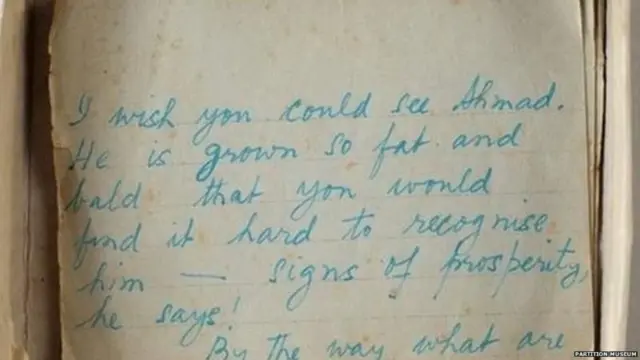 I wish you could see Ahmad.
He is grown so fat and
bald that you would
find it hard to recognise
him — signs of prosperity,
he says!
By the way, what are
PARTITION MUSEUM